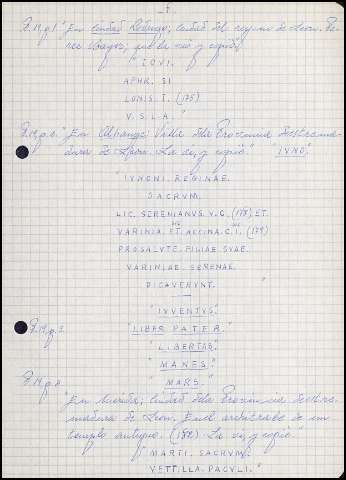 F.19.p.1. "En Ciudad Rodrigo; ciudad del reyno de Leon. Pe-
rez Bayer; que la vió y copió".
"IOVI.
APHR. SI
LONIS. I. (175)
V. S. L. A."
"En Alhange; Villa dela Provincia de Estrema-
dura de Leon. La vi, y copié." "IVNO"
"IVNONI. REGINAE.
SACRVM.
LIC. SERENIANVS. V. C. (178) ET.
VARINIA. FLACCINA. C. I. (179)
PRO SALVTE. FILIAE SVAE.
VARINIAE SERENAE.
DICAVERVNT."
"IVVENTVS."
F.19.p.3. "LIBER PATER."
"LIBERTAS."
"MANES."
"MARS."
"En Merida; ciudad dela Provincia de Estre-
madura de Leon. En el architrabe de un
templo antiguo. (182) La vi, y copié."
"MARTI. SACRVM.
VETTILLA. PACVLI."